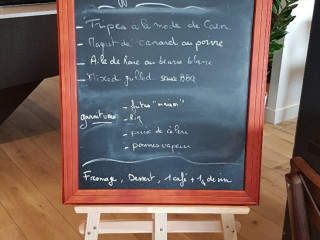 - Tripes à la mode de Caen
- Magret de canard au poivre
- Aile de raie au beurre blanc
- Mixed grilled sauce BBQ
garnitures: - frites "maison"
- riz
- purée de céleri
- pommes vapeur
Fromage, Dessert, 1 café + 1/4 de vin